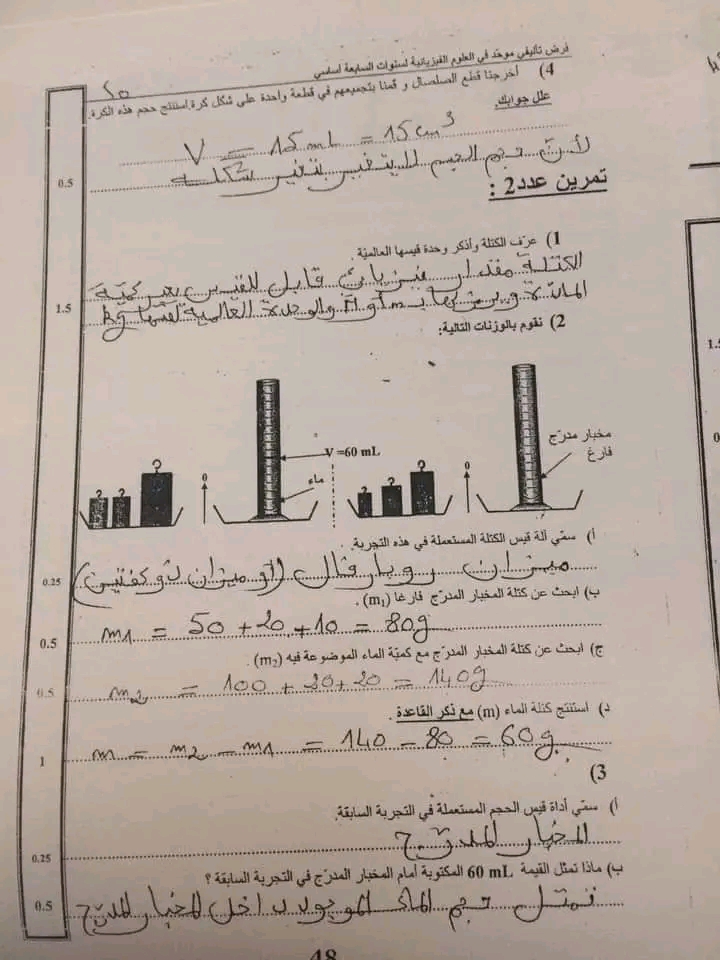 فرض تأليفي موحّد في العلوم الفيزيائية لسنوات السابعة أساسي
4) أخرجنا قطع الصلصال و قمنا بتجميعهم في قطعة واحدة على شكل كرة.استنتج حجم هذه الكرة.
علل جوابك.
V = 15 mL = 15 cm³
0.5
لأن حجم الجسم لا يتغير بتغير شكله
تمرين عدد2 :
1) عرّف الكتلة وأذكر وحدة قيسها العالميّة.
الكتلة مقدار فيزيائي قابل للقيس يعبر كميّة
1.5
المادة ويرمز لها بـ m أو M والوحدة العالمية لقيسها kg
2) نقوم بالوزنات التالية:
مخبار مدرّج
فارغ
0
V =60 mL
ماء
0
أ) سمّي آلة قيس الكتلة المستعملة في هذه التجربة.
0.25
ميزان روبارفال (أو ميزان ذو كفتين)
ب) ابحث عن كتلة المخبار المدرّج فارغا (m₁).
0.5
m1 = 50 + 20 + 10 = 80g
ج) ابحث عن كتلة المخبار المدرّج مع كميّة الماء الموضوعة فيه (m₂).
0.5
m2 = 100 + 20 + 20 = 140g
د) استنتج كتلة الماء (m) مع ذكر القاعدة.
1
m = m2 - m1 = 140 - 80 = 60g
3)
أ) سمّي أداة قيس الحجم المستعملة في التجربة السابقة.
0.25
المخبار المدرّج
ب) ماذا تمثل القيمة 60 mL المكتوبة أمام المخبار المدرّج في التجربة السابقة ؟
0.5
تمثل حجم الماء الموجود داخل المخبار المدرّج
48
1.5